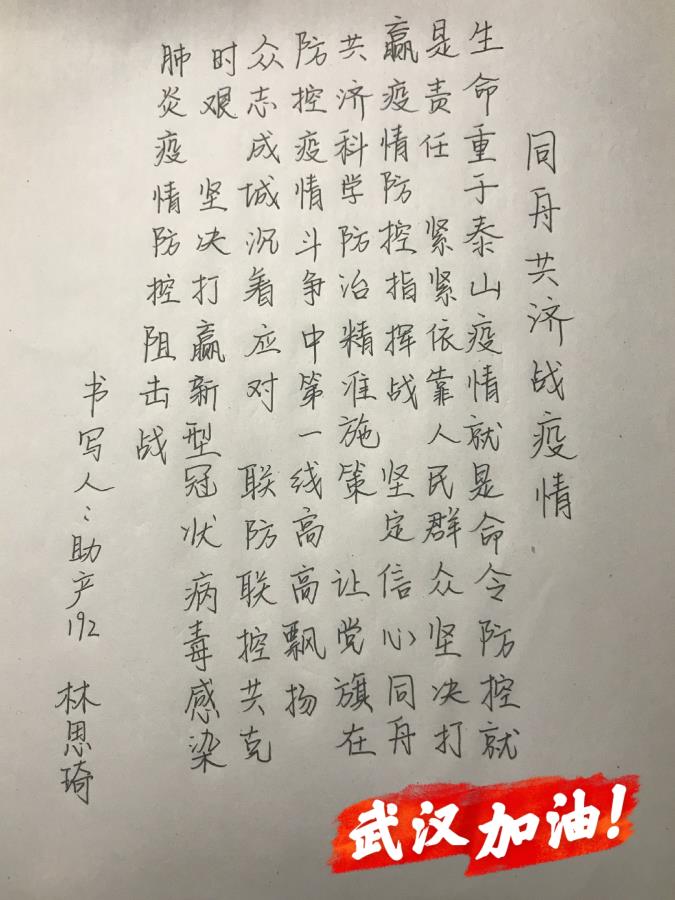 同舟共济战疫情
生命重于泰山疫情就是命令防控就
是责任 紧紧依靠人民群众坚决打
赢疫情防控指挥战 坚定信心同舟
共济科学防治精准施策 让党旗在
防控疫情斗争中第一线高高飘扬
众志成城沉着应对 联防联控共克
时艰 坚决打赢新型冠状病毒感染
肺炎疫情防控阻击战
书写人：助产192 林思琦
武汉加油！